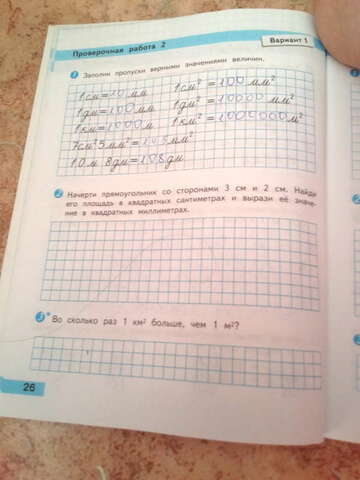 Проверочная работа 2
Вариант 1
1 Заполни пропуски верными значениями величин.
1 см = 10 мм 1 см² = 100 мм²
1 дм = 100 мм 1 дм² = 10000 мм²
1 км = 1000 м 1 км² = 1000000 м²
7 см² 5 мм² = 705 мм²
10 м 8 дм = 108 дм
2 Начерти прямоугольник со сторонами 3 см и 2 см. Найди
его площадь в квадратных сантиметрах и вырази её значе-
ние в квадратных миллиметрах.
3* Во сколько раз 1 км² больше, чем 1 м²?
26